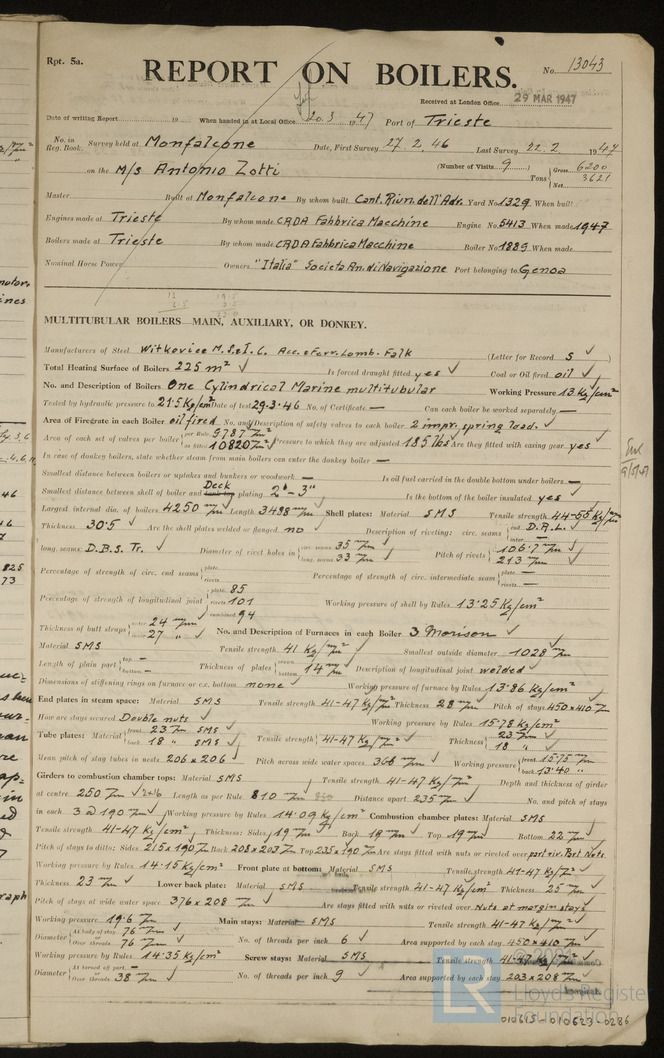 Rpt. 5a.
REPORT ON BOILERS.
No. 13043
Received at London Office 29 MAR 1947
Date of writing Report 19 When handed in at Local Office 20.3 1947 Port of Trieste
No. in Reg. Book. Survey held at Monfalcone Date, First Survey 27.2.46 Last Survey 22.2 1947
on the M/s Antonio Zotti (Number of Visits 9) Tons Gross 6200 Net 3621
Master Built at Monfalcone By whom built Cant. Riun. dell'Adr. Yard No. 1329 When built
Engines made at Trieste By whom made CRDA Fabbrica Macchine Engine No. 5413 When made 1947
Boilers made at Trieste By whom made CRDA Fabbrica Macchine Boiler No. 1889 When made
Nominal Horse Power Owners "Italia" Societa An. di Navigazione Port belonging to Genoa
MULTITUBULAR BOILERS MAIN, AUXILIARY, OR DONKEY.
Manufacturers of Steel Witkovice M.S.&I.C. Acc. e Ferr. Lomb. Falk (Letter for Record S)
Total Heating Surface of Boilers 225 m² Is forced draught fitted yes Coal or Oil fired oil
No. and Description of Boilers One Cylindrical Marine multitubular Working Pressure 13 Kg/cm²
Tested by hydraulic pressure to 21.5 Kg/cm² Date of test 29.3.46 No. of Certificate — Can each boiler be worked separately —
Area of Firegrate in each Boiler oil fired No. and Description of safety valves to each boiler 2 impr. spring load.
Area of each set of valves per boiler per Rule 9787 as fitted 10820 Pressure to which they are adjusted 185 lbs Are they fitted with easing gear yes
In case of donkey boilers, state whether steam from main boilers can enter the donkey boiler —
Smallest distance between boilers or uptakes and bunkers or woodwork — Is oil fuel carried in the double bottom under boilers —
Smallest distance between shell of boiler and Deck plating 2'-3" Is the bottom of the boiler insulated yes
Largest internal dia. of boilers 4250 Length 3498 Shell plates: Material SMS Tensile strength 44-55 Kg/
Thickness 30.5 Are the shell plates welded or flanged no Description of riveting: circ. seams end D.R.L. inter. —
long. seams D.B.S. Tr. Diameter of rivet holes in circ. seams 35 long. seams 33 Pitch of rivets 106.7 213
Percentage of strength of circ. end seams plate rivets Percentage of strength of circ. intermediate seam plate — rivets —
Percentage of strength of longitudinal joint plate 85 rivets 101 combined 94 Working pressure of shell by Rules 13.25 Kg/cm²
Thickness of butt straps outer 24 inner 27 " No. and Description of Furnaces in each Boiler 3 Morison
Material SMS Tensile strength 41 Kg/ Smallest outside diameter 1028
Length of plain part top — bottom Thickness of plates crown bottom 14 Description of longitudinal joint welded
Dimensions of stiffening rings on furnace or c.c. bottom none Working pressure of furnace by Rules 13.86 Kg/cm²
End plates in steam space: Material SMS Tensile strength 41-47 Kg/ Thickness 28 Pitch of stays 450 x 410
How are stays secured Double nuts Working pressure by Rules 15.78 Kg/cm²
Tube plates: Material front 23 SMS back 18 " SMS Tensile strength 41-47 Kg/ Thickness 23 18 "
Mean pitch of stay tubes in nests 206 x 206 Pitch across wide water spaces 368 Working pressure front 15.75 back 13.40 "
Girders to combustion chamber tops: Material SMS Tensile strength 41-47 Kg/ Depth and thickness of girder
at centre 250 Length as per Rule 810 Distance apart 235 No. and pitch of stays
in each 3 @ 190 Working pressure by Rules 14.09 Kg/cm Combustion chamber plates: Material SMS
Tensile strength 41-47 Kg/cm² Thickness: Sides 19 Back 18 Top 19 Bottom 22
Pitch of stays to ditto: Sides 215 x 190 Back 208 x 203 Top 235 x 190 Are stays fitted with nuts or riveted over part riv. Part Nuts
Working pressure by Rules 14.15 Kg/cm² Front plate at bottom: Material SMS Tensile strength 41-47 Kg/
Thickness 23 Lower back plate: Material SMS Tensile strength 41-47 Kg/cm² Thickness 25
Pitch of stays at wide water space 376 x 208 Are stays fitted with nuts or riveted over Nuts at margin stays
Working pressure 19.6 Main stays: Material SMS Tensile strength 41-47 Kg/cm²
Diameter At body of stay 76 Over threads 76 No. of threads per inch 6 Area supported by each stay 450 x 410
Working pressure by Rules 14.35 Kg/cm² Screw stays: Material SMS Tensile strength 41-47 Kg/cm²
Diameter At turned off part — Over threads 38 No. of threads per inch 9 Area supported by each stay 203 x 208
LR
Lloyd's Register
Foundation
010615-010623-0286